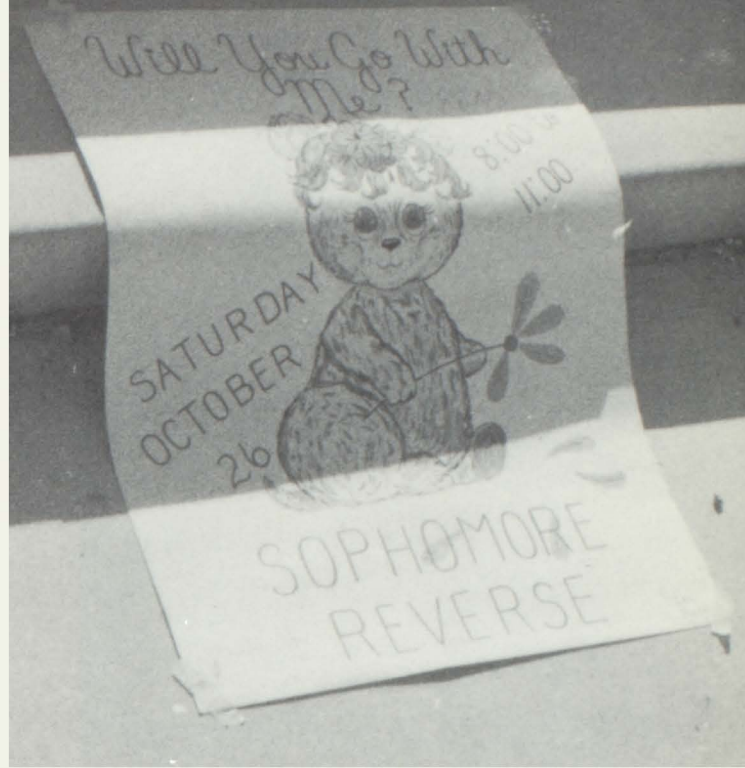 Will You Go With
Me?
8:00 to
11:00
SATURDAY
OCTOBER
26
SOPHOMORE
REVERSE